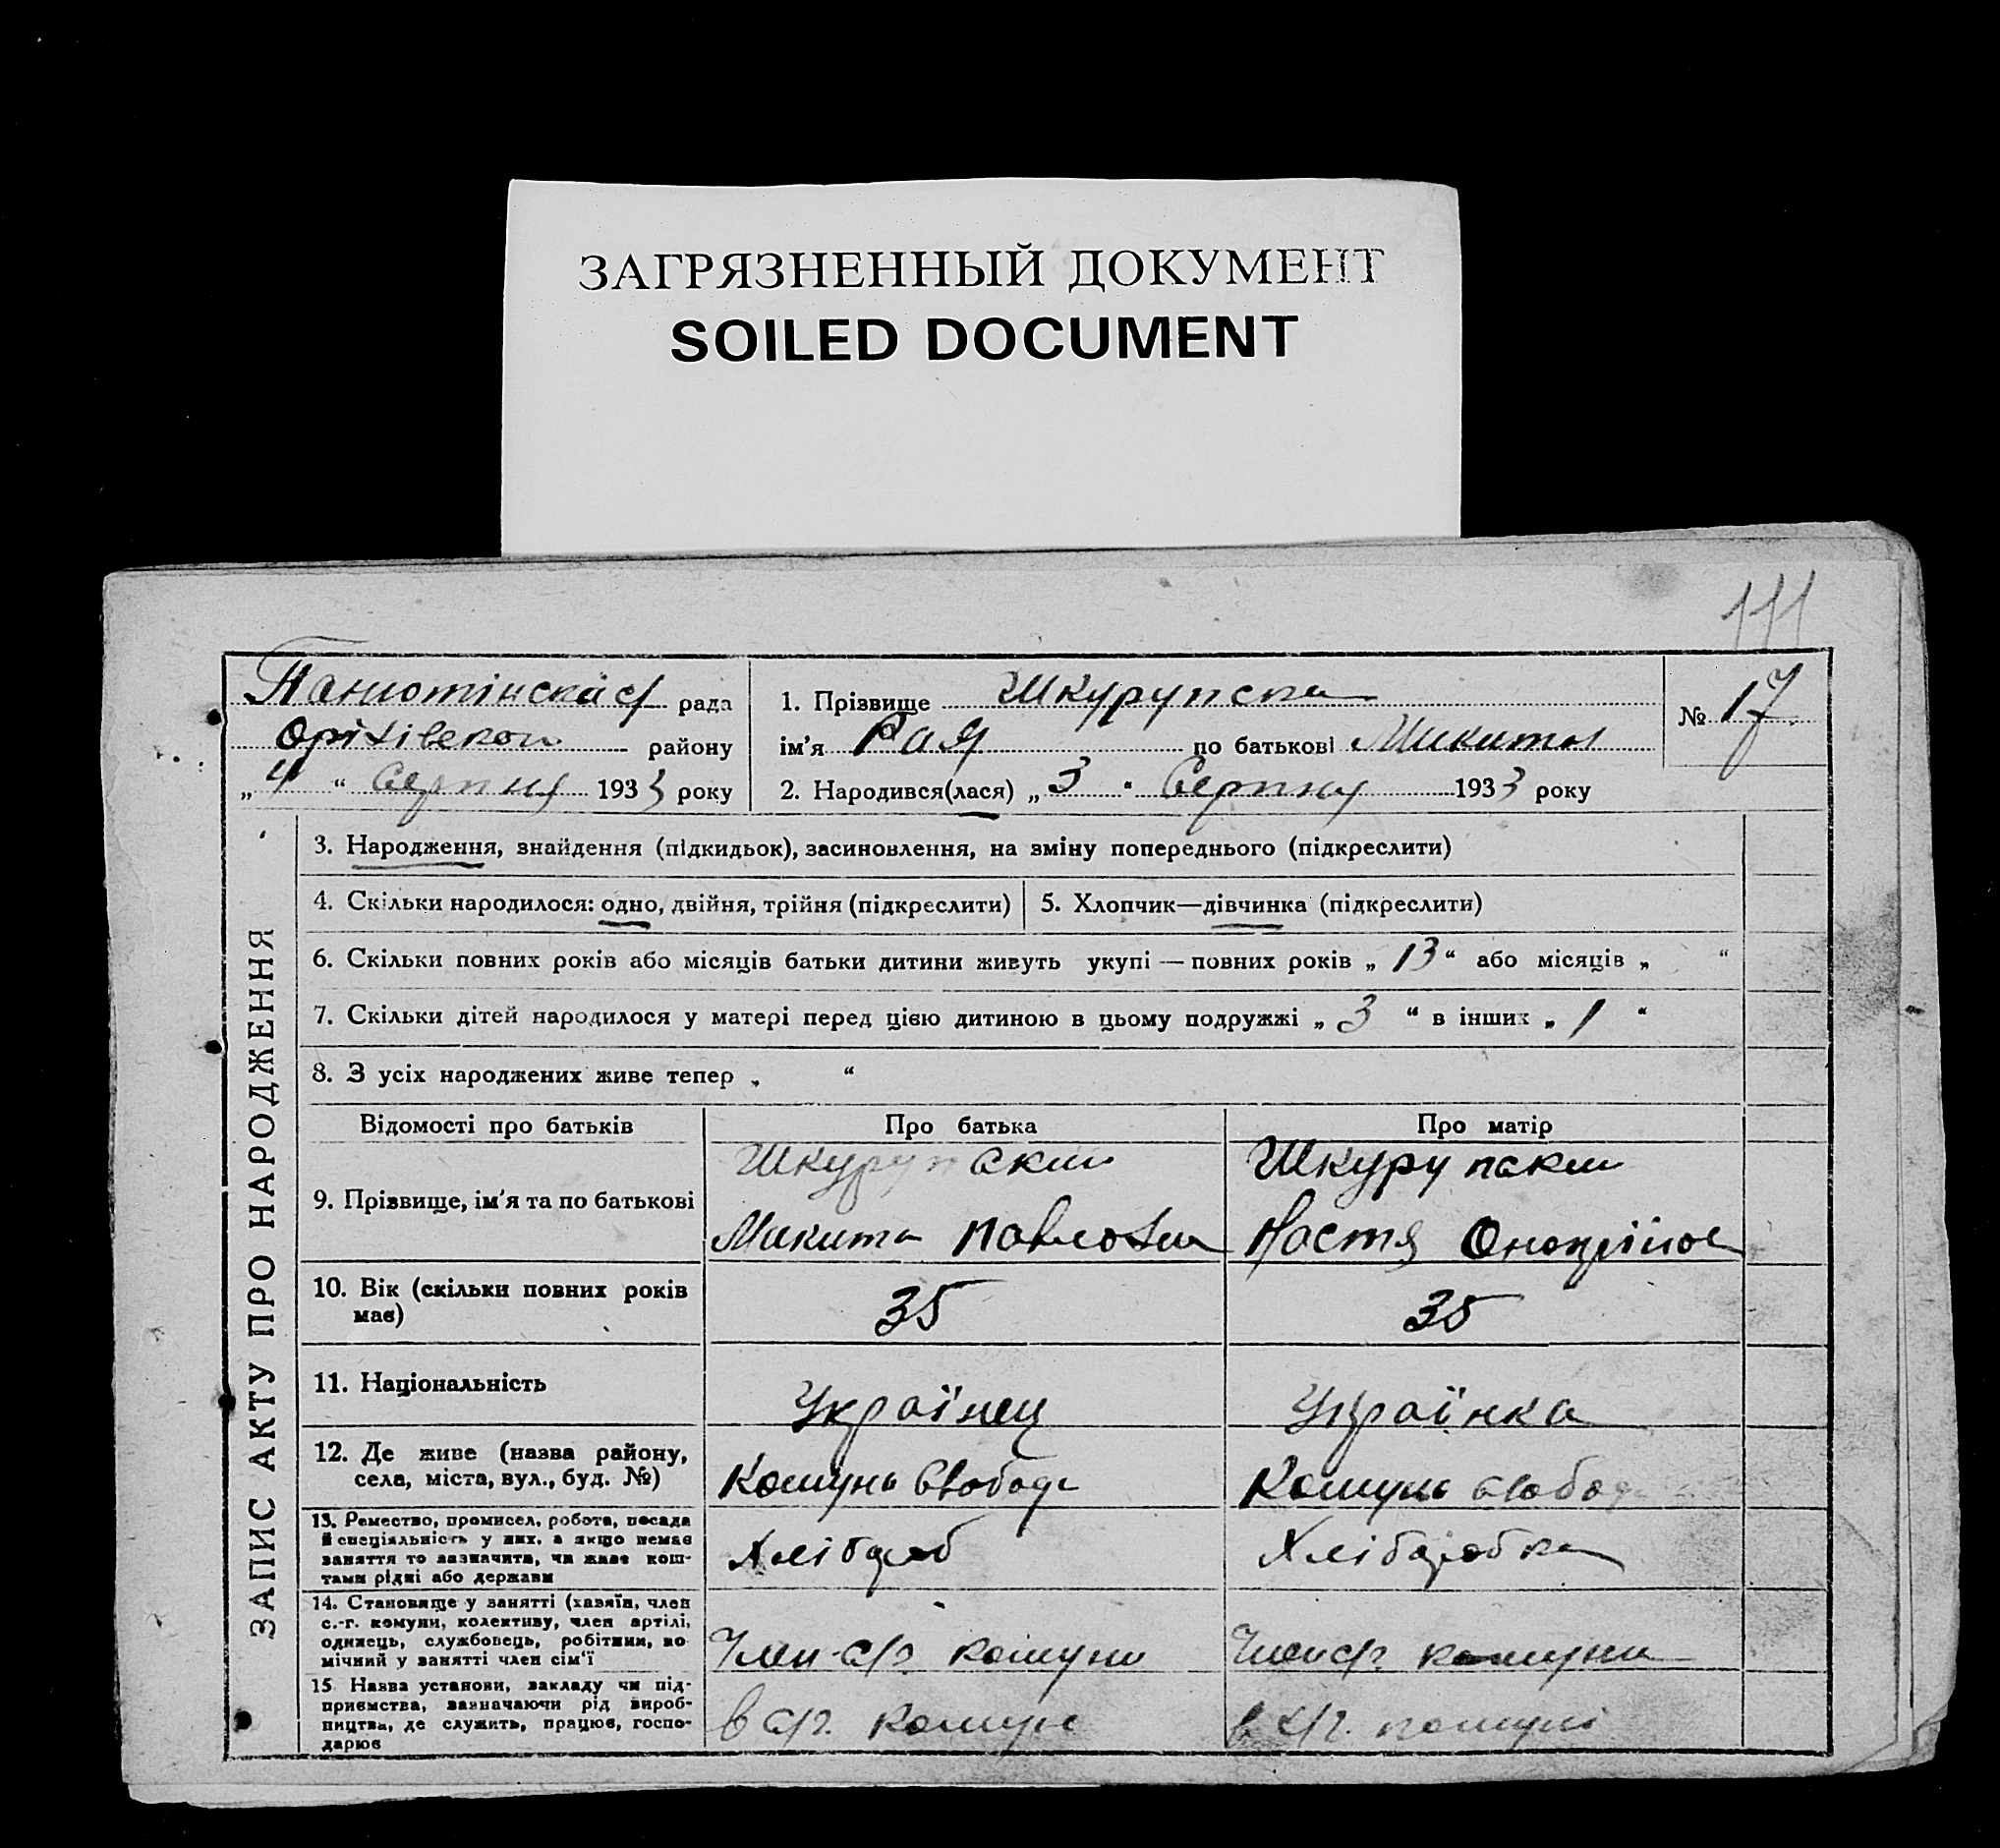 ЗАГРЯЗНЕННЫЙ ДОКУМЕНТ
SOILED DOCUMENT
111
рада
1. Прізвище Шкурупска
№ 17
Оріхівскої району
ім'я Рая по батькові Микити
„4“ Серпня 1933 року
2. Народився(лася) „3“ Серпня 1933 року
ЗАПИС АКТУ ПРО НАРОДЖЕННЯ
3. Народження, знайдення (підкидьок), засиновлення, на зміну попереднього (підкреслити)
4. Скільки народилося: одно, двійня, трійня (підкреслити)
5. Хлопчик—дівчинка (підкреслити)
6. Скільки повних років або місяців батьки дитини живуть укупі — повних років „13“ або місяців „ “
7. Скільки дітей народилося у матері перед цією дитиною в цьому подружжі „3“ в інших „1“
8. З усіх народжених живе тепер „ “
Відомості про батьків
Про батька
Про матір
9. Прізвище, ім'я та по батькові
Шкурупский
Микита Павлович
Шкурупский
Настя
10. Вік (скільки повних років
має)
35
35
11. Національність
Українец
Українка
12. Де живе (назва району,
села, міста, вул., буд. №)
Комуна Свобода
Комуна Свобода
13. Ремество, промисел, робота, посада
й спеціяльність у них, а якщо немає
заняття то зазначити, чи живе кош-
тами рідні або держави
Хлібороб
Хлібопробка
14. Становище у занятті (хазяїн, член
с.-г. комуни, колективу, член артілі,
одинець, службовець, робітник, по
мічний у занятті член сім'ї
Член с/г. комуни
Член с/г. комуни
15 Назва установи, закладу чи під-
приємства, зазначаючи рід вироб-
ництва, де служить, працює, госпо-
дарює
в с/г. комуне
в с/г. комуні